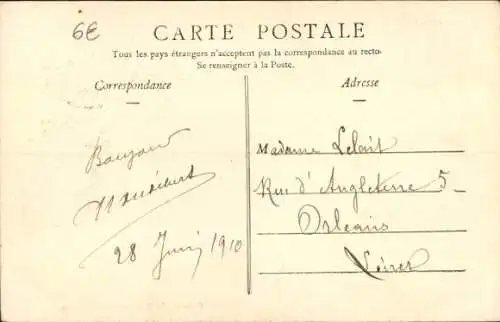 6€
CARTE POSTALE
Tous les pays étrangers n'acceptent pas la correspondance au recto.
Se renseigner à la Poste.
Correspondance
Adresse
Bonjour
28 Juin 1910
Madame Lelait
Rue d'Angleterre 5
Orléans
Loiret